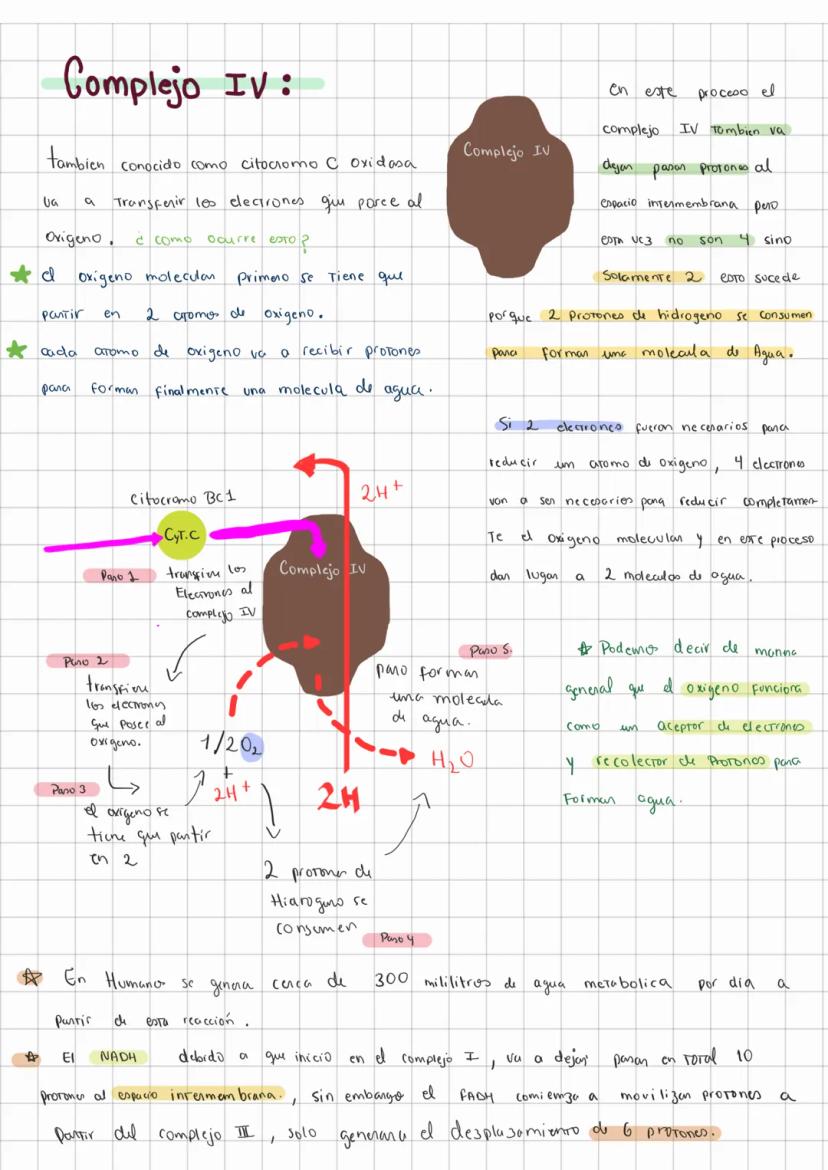 Complejo IV:
tambien conocido como citocromo C oxidasa
va a transferir los electrones que posee al
Oxigeno. ¿como ocurre esto?
el oxigeno molecular primero se tiene que
partir en 2 atomos de oxigeno.
cada atomo de oxigeno va a recibir protones
para formar finalmente una molecula de agua.
Complejo IV
En este proceso el
complejo IV tambien va
dejar pasar protones al
espacio intermembrana pero
esta vez no son 4 sino
Solamente 2 esto sucede
porque 2 protones de hidrogeno se consumen
para formar una molecula de Agua.
Si 2 electrones fueron necesarios para
reducir un atomo de oxigeno, 4 electrones
van a ser necesarios para reducir completamen-
Te el oxigeno molecular y en este proceso
dan lugar a 2 moleculas de agua.
Podemos decir de manera
general que el oxigeno funciona
como un aceptor de electrones
y recolector de Protones para
Formar agua.
citocromo BC1
Cyt.C
2H+
Complejo IV
Paso 1
transfiere los
Electrones al
complejo IV
Paso 2
transfiere
los electrones
que posee al
oxigeno.
Paso 3
el oxigeno se
tiene que partir
en 2
1/2O2
+
2H+
2H
2 protones de
Hidrogeno se
consumen
Paso 4
Paso 5.
para formar
una molecula
de agua.
H2O
En Humanos se genera cerca de 300 mililitros de agua metabolica por dia a
partir de esta reacción.
El NADH debido a que inicio en el complejo I, va a dejar pasar en total 10
protones al espacio intermembrana., sin embargo el FADH comienza a movilizar protones a
partir del complejo III, solo generara el desplazamiento de 6 protones.